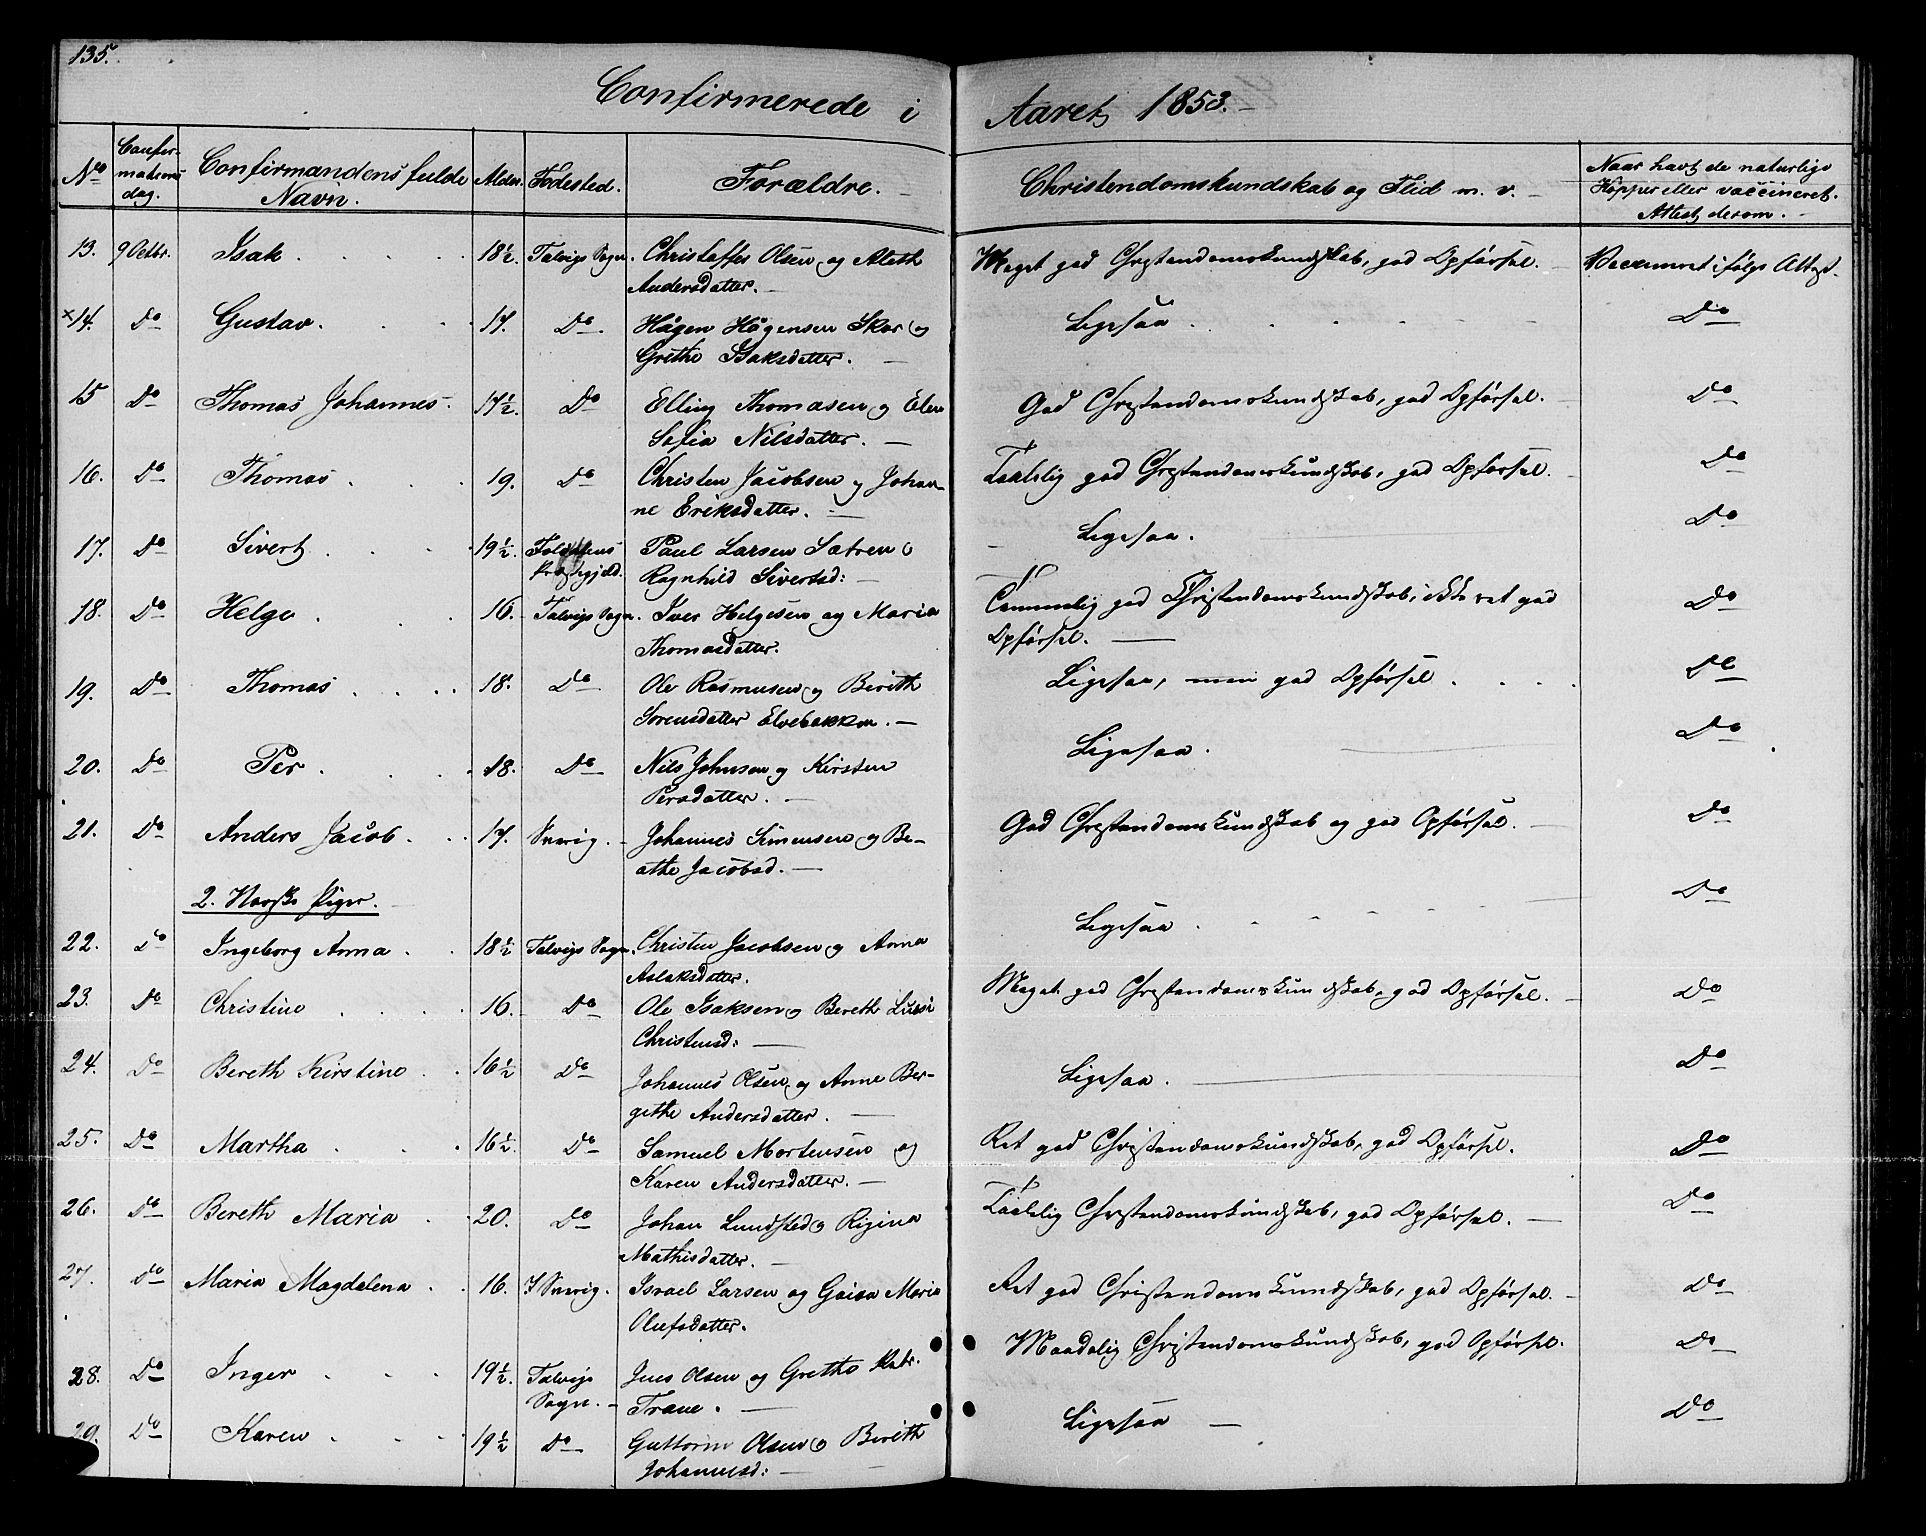 135.
Confirmerede i Aaret 1853.
No Confirmations dag. Confirmandens fulde Navn. Alder. Fødested. Forældre. Christendomskundskab og Flid m. v. Naar havt de naturlige Kopper eller vaccineret. Attest derom.
13. 9 Octbr. Isak. 18½. Talvigs Sogn. Christoffer Olsen og Aleth Meget god Christendomskundskab, god Opførsel. Vaccineret ifølge Attest.
Andersdatter.
×14. Do Gustav. 17. Do. Hågen Hågensen Skor og Ligesaa. Do
Grethe Isaksdatter.
15 Do Thomas Johannes. 17½. Do Elling Thomasen og Elen God Christendomskundskab, god Opførsel. Do
Sofia Nilsdatter.
16. Do Thomas 19. Do Christen Jacobsen og Johan- Taalelig god Christendomskundskab, god Opførsel. Do
ne Eriksdatter.
17. Do Sivert 19½. Foldalens Paul Larsen Sætren og Ligesaa. Do
Præstegjeld. Ragnhild Sivertsd:
18. Do Helge 16. Talvigs Sogn. Iver Helgesen og Maria Temmelig god Christendomskundskab, ikke ret god Do
Thomasdatter. Opførsel.
19. Do Thomas 18. Do Ole Rasmusen og Berith Ligesaa, men god Opførsel. Do
Sørensdatter Elvebakken.
20. Do Per. 18. Do Nils Johnsen og Kirsten Ligesaa. Do
Persdatter.
21. Do Anders Jacob. 17. Sverig. Johannes Simensen og Be- God Christendomskundskab og god Opførsel. Do
athe Jacobsd.
2. Norske Piger.
22. Do Ingeborg Anna 18½ Talvigs Sogn. Christen Jacobsen og Anna Ligesaa. Do
Aslaksdatter.
23. Do Christine 16. Do Ole Isaksen og Bereth Lussi Meget god Christendomskundskab, god Opførsel. Do
Christensd:
24. Do Bereth Kirstine 16½ Do Johannes Olsen og Anne Ber- Ligesaa. Do
githe Andersdatter.
25. Do Martha 16½. Do Samuel Mortensen og Ret god Christendomskundskab, god Opførsel. Do
Karen Andersdatter.
26. Do Bereth Maria 20. Do Johan Lundsted og Rigina Taalelig Christendomskundskab, god Opførsel. Do
Mathisdatter.
27. Do Maria Magdalena 16. I Sverig. Israel Larsen og Maria Ret god Christendomskundskab, god Opførsel. Do
Olufsdatter.
28. Do Inger 19½. Talvigs Jens Olsen og Grethe Maadelig Christendomskundskab, god Opførsel. Do
Sogn. Trane.
29. Do Karen 19½ Do Guttorm Olsen og Berith Ligesaa Do
Johannesd: